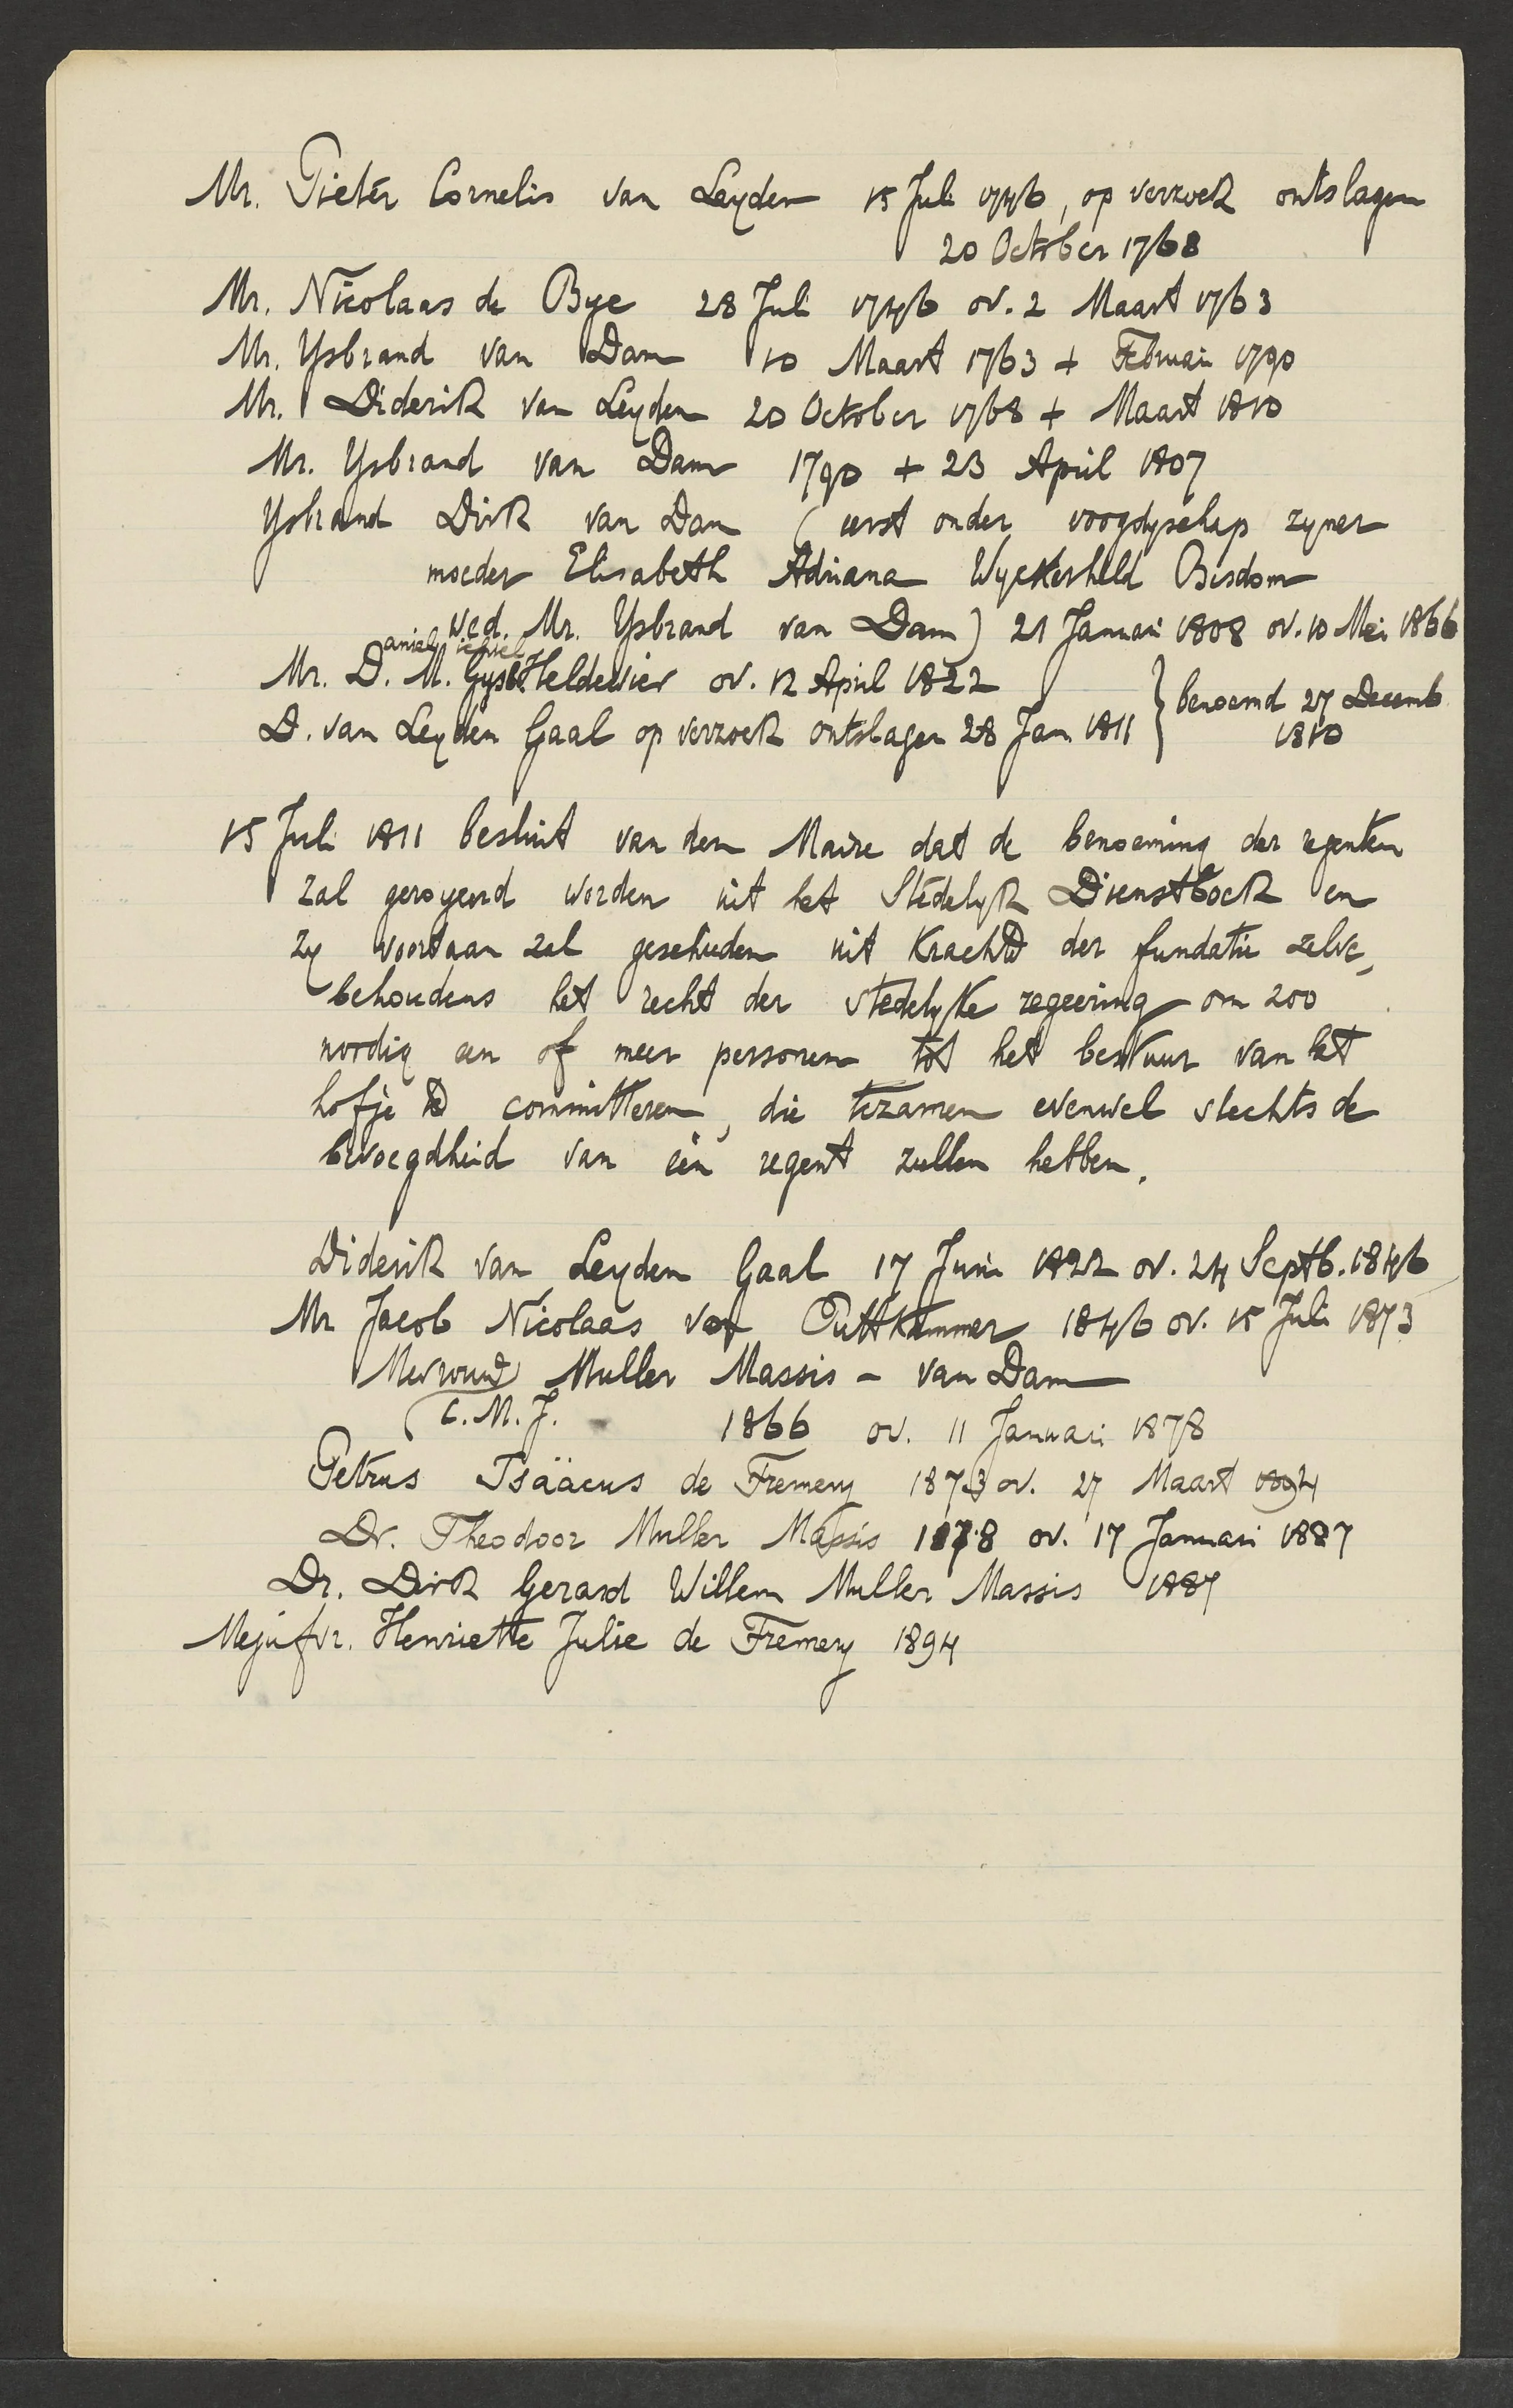 Mr. Pieter Cornelis van Leyden 15 Juli 1746, op verzoek ontslagen
20 October 1768
Mr. Nicolaas de Bye 28 Juli 1746 ov. 2 Maart 1763
Mr. Ysbrand van Dam 10 Maart 1763 + Februari 1790
Mr. Diderik van Leyden 20 October 1768 + Maart 1810
Mr. Ysbrand van Dam 1790 + 23 April 1807
Ysbrand Dirk van Dam (eerst onder voogdyschap zyner
moeder Elisabeth Adriana Wyckerheld Bisdom
wed. Mr. Ysbrand van Dam) 21 Januari 1808 ov. 10 Mei 1866
Mr. Daniel M. Gysb. Heldewier ov. 12 April 1822
D. van Leyden Gaal op verzoek ontslagen 28 Jan 1811 } benoemd 27 Decemb
1810
15 Juli 1811 besluit van den Maire dat de benoeming der regenten
zal geroyeerd worden uit het Stedelyk Dienstboek en
zy voortaan zal geschieden uit kracht der fundatie zelve,
behoudens het recht der stedelyke regeering om zoo
nordig een of meer personen tot het bestuur van het
hofje te committeren, die tezamen evenwel slechts de
bevoegdheid van één regent zullen hebben.
Diderik van Leyden Gaal 17 Juni 1822 ov. 24 Septb. 1846
Mr Jacob Nicolaas von Puttkammer 1846 ov. 15 Juli 1873
Mevrouw Muller Massis - van Dam
C. M. J. 1866 ov. 11 Januari 1878
Petrus Isäacus de Fremery 1873 ov. 27 Maart 1894
Dr. Theodoor Muller Massis 1878 ov. 17 Januari 1887
Dr. Dirk Gerard Willem Muller Massis 1887
Mejufvr. Henriette Julie de Fremery 1894